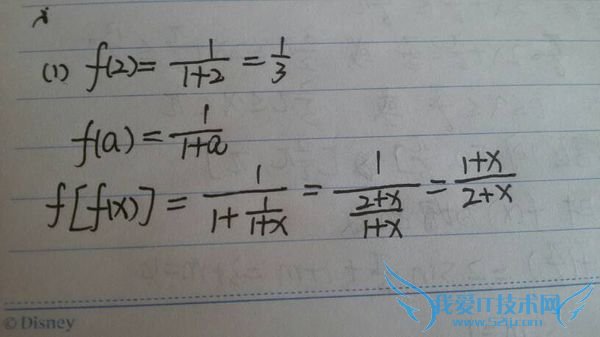 (1) f(2) = 1/(1+2) = 1/3
f(a) = 1/(1+a)
f[f(x)] = 1/(1+1/(1+x)) = 1/((2+x)/(1+x)) = (1+x)/(2+x)
©Disney
我爱IT技术网
www.52ij.com